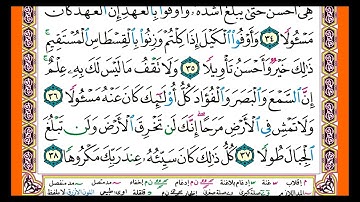 هِىَ أَحْسَنُ حَتَّىٰ يَبْلُغَ أَشُدَّهُۥ ۚ وَأَوْفُوا۟ بِٱلْعَهْدِ ۖ إِنَّ ٱلْعَهْدَ كَانَ
مَسْـُٔولًا ٣٤ وَأَوْفُوا۟ ٱلْكَيْلَ إِذَا كِلْتُمْ وَزِنُوا۟ بِٱلْقِسْطَاسِ ٱلْمُسْتَقِيمِ ۚ
ذَٰلِكَ خَيْرٌ وَأَحْسَنُ تَأْوِيلًا ٣٥ وَلَا تَقْفُ مَا لَيْسَ لَكَ بِهِۦ عِلْمٌ ۚ
إِنَّ ٱلسَّمْعَ وَٱلْبَصَرَ وَٱلْفُؤَادَ كُلُّ أُو۟لَـٰٓئِكَ كَانَ عَنْهُ مَسْـُٔولًا ٣٦
وَلَا تَمْشِ فِى ٱلْأَرْضِ مَرَحًا ۖ إِنَّكَ لَن تَخْرِقَ ٱلْأَرْضَ وَلَن تَبْلُغَ
ٱلْجِبَالَ طُولًا ٣٧ كُلُّ ذَٰلِكَ كَانَ سَيِّئُهُۥ عِندَ رَبِّكَ مَكْرُوهًا ٣٨